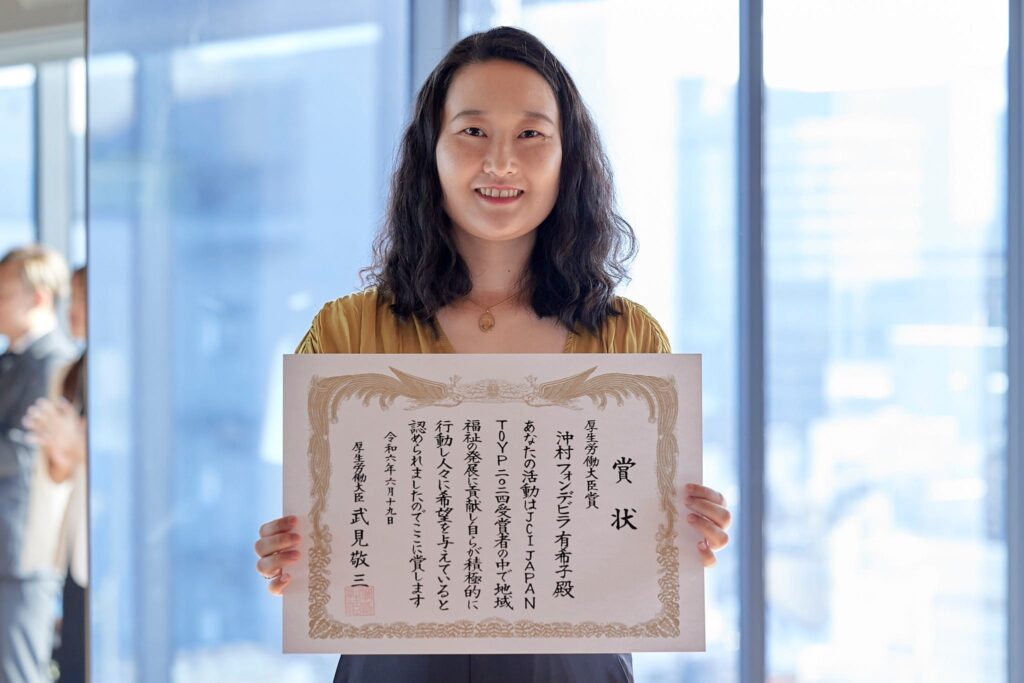 賞状
厚生労働大臣賞
沖村フォンデビラ有希子殿
あなたの活動はJCI JAPAN
TOYP二〇二四受賞者の中で地域
福祉の発展に貢献し自らが積極的に
行動し人々に希望を与えていると
認められましたのでここに賞します
令和六年六月十九日
厚生労働大臣 武見敬三